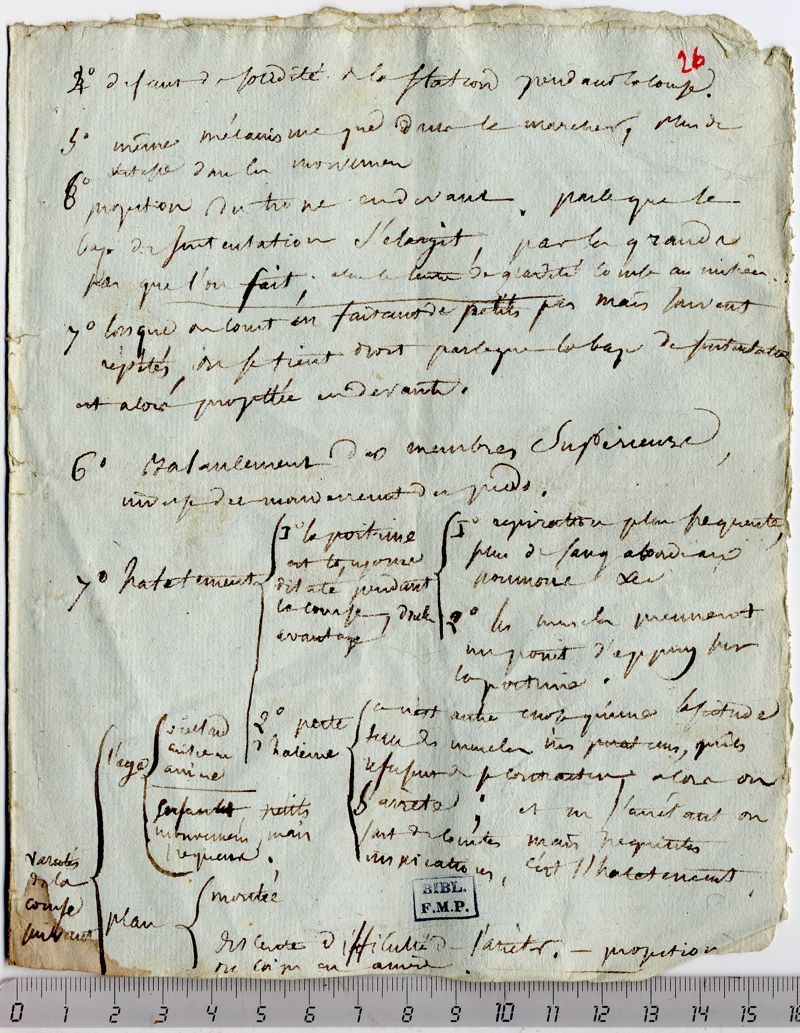 26
4° defaut de solidité de la station pendant la course.
5° même mécanisme que dans le marcher, plus de
vitesse dans les mouvemen
6° projection du tronc en devant, parceque la
base de sustentation s'élargit, par les grands
pas que l'on fait, et le centre de gravité tombe au milieu.
7° lorsque on court en faisant de petits pas mais souvent
répétés, on se tient droit parceque la base de sustentation
est alors projettée en devant.
6° Balancement des membres Supérieurs,
inverse des mouvement des pieds.
7° haletement
1° la poitrine
est toujours
dilaté pendant
la course, de la
avantage
1° respiration plus frequente,
plus de sang aborde aux
poumons &c
2° les muscles prennent
un point d'appuy sur
la poitrine.
2° perte
d'haleine
ce n'est autre chose qu'une lassitude
des muscles inspirateurs, qui se
refusent de se contracter, alors on
s'arrete, et en s'arrêtant on
fait de courtes mais frequentes
inspirations, c'est l'haletement.
varietés
de la
course
suivant
l'age
vieillard
arriere
enfants petits
mouvemens, mais
frequens.
plan
montée
descente difficulté de s'arrêter. — projection
du corps en arriere
BIBL.
F.M.P.
0 1 2 3 4 5 6 7 8 9 10 11 12 13 14 15 16